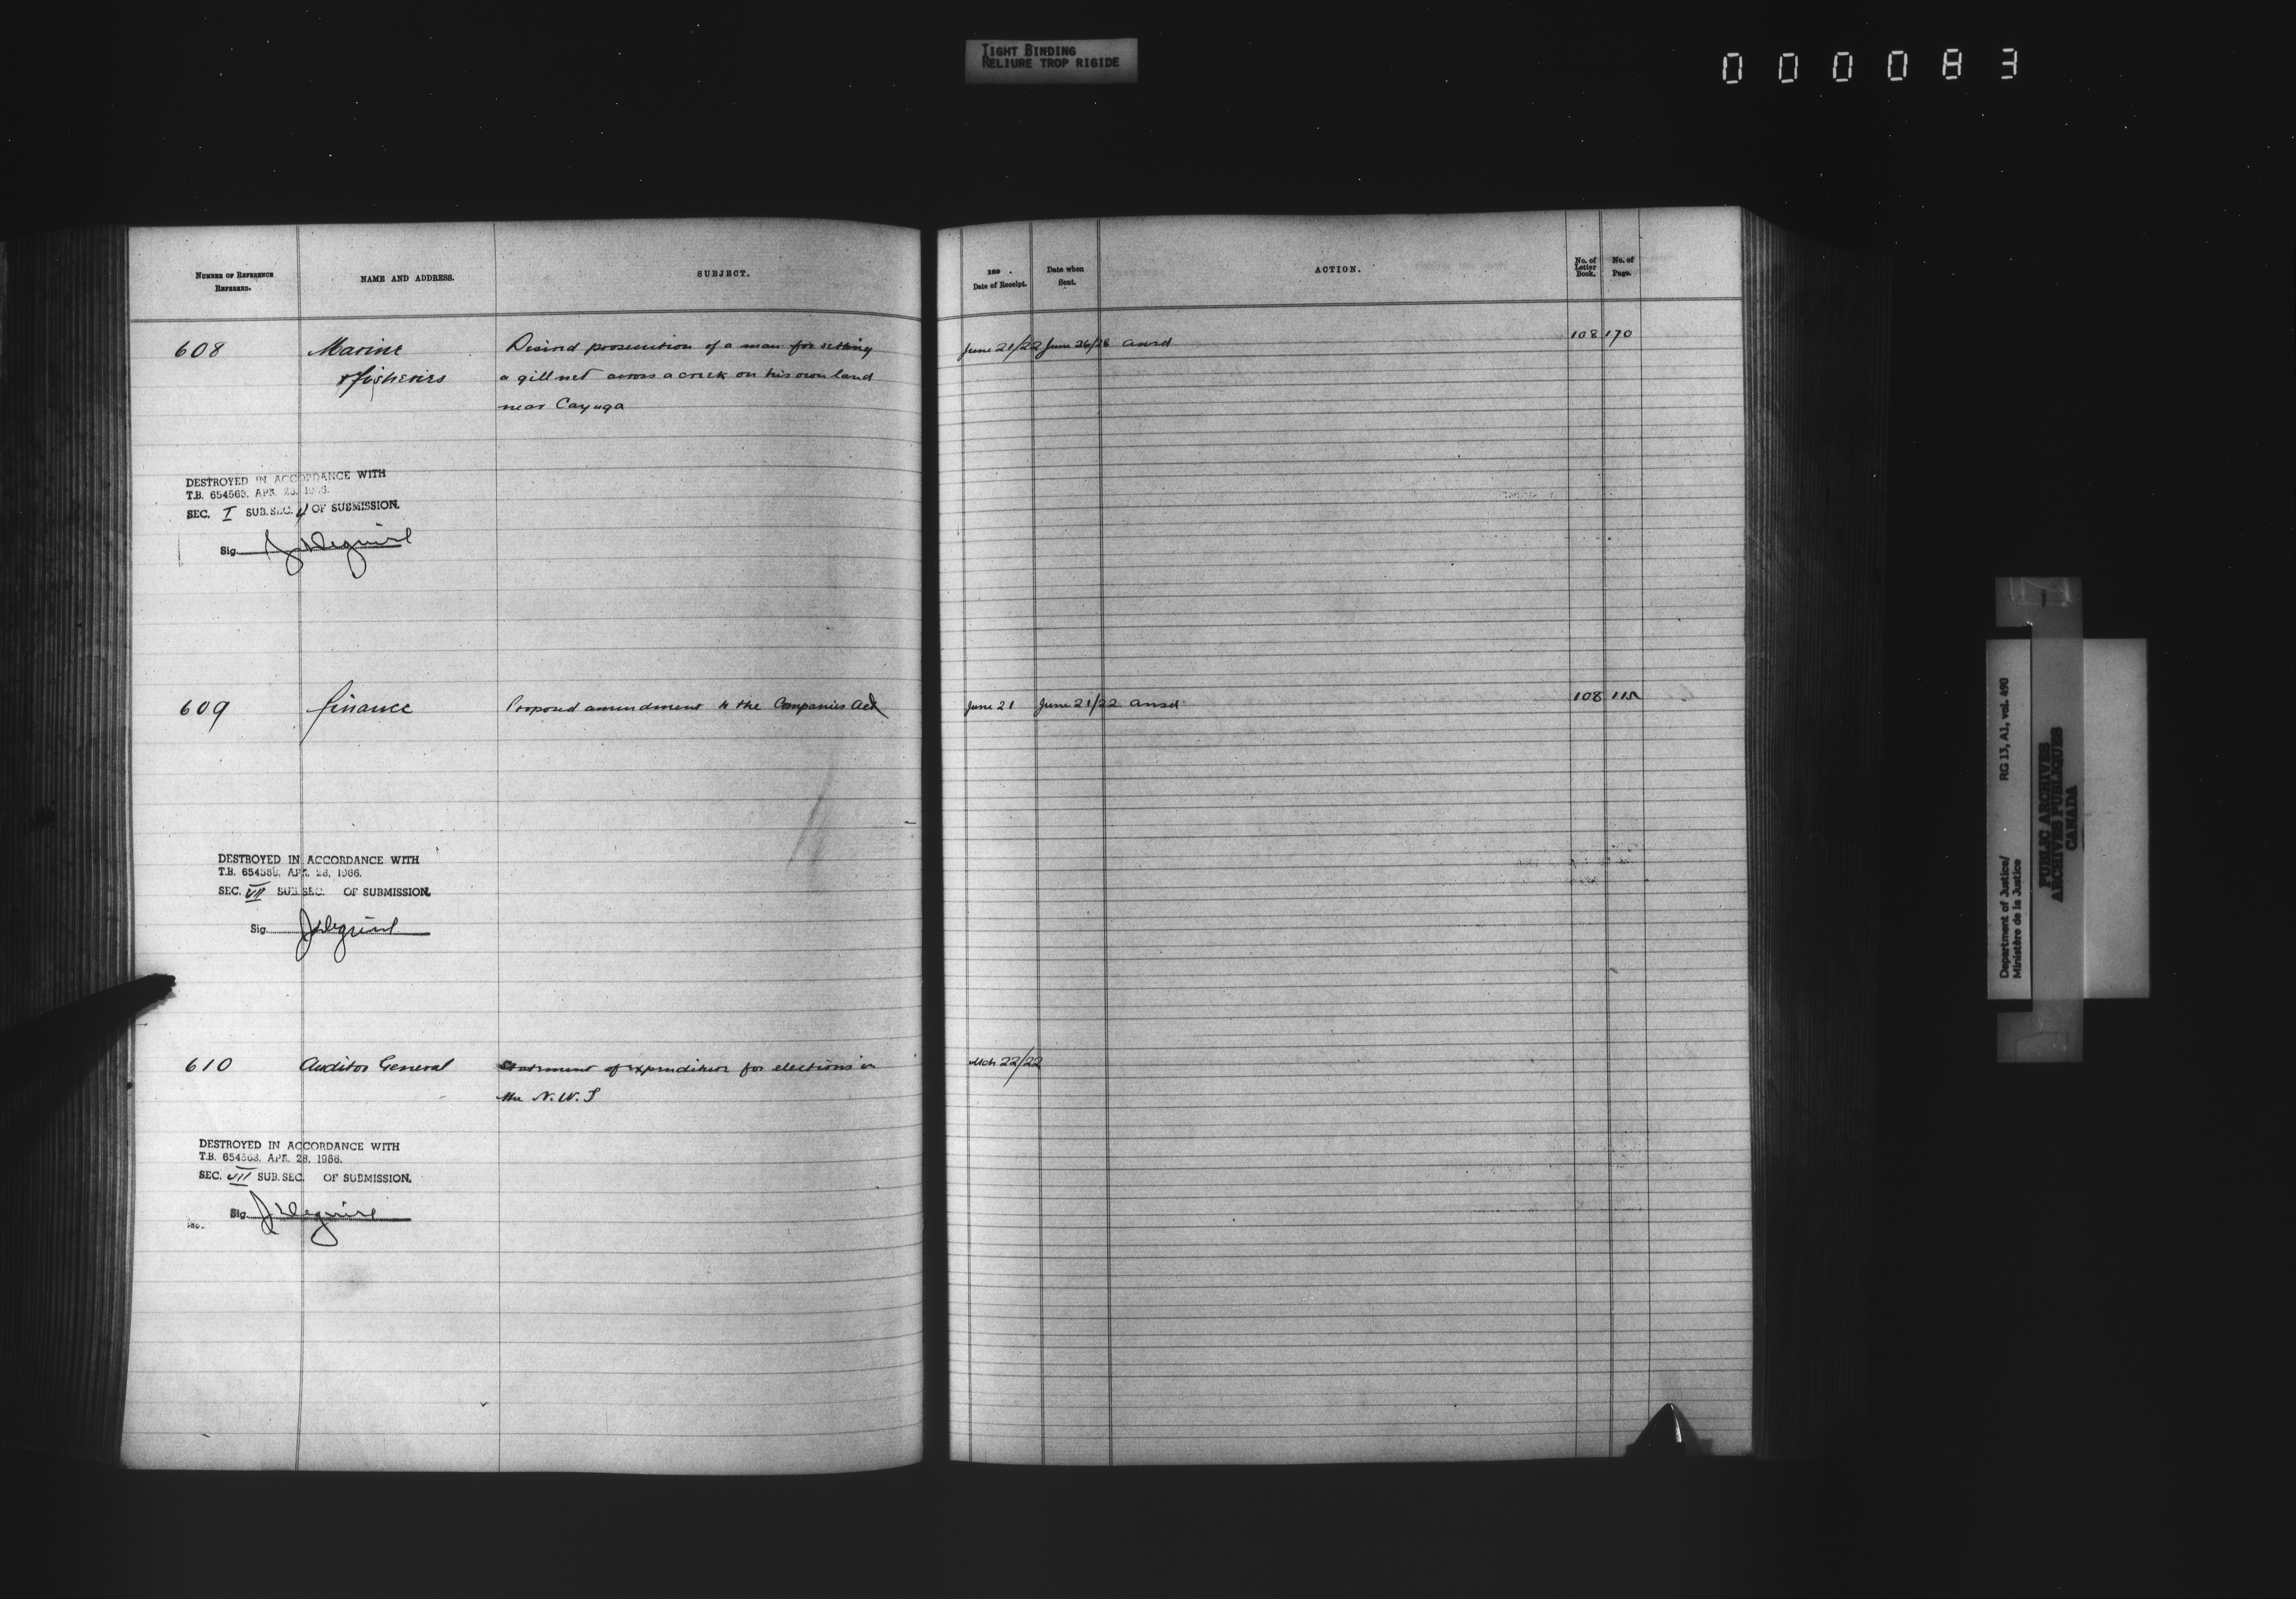 TIGHT BINDING
RELIURE TROP RIGIDE
000083
NUMBER OF REFERENCE REFERRED.
NAME AND ADDRESS.
SUBJECT.
189 .
Date of Receipt.
Date when Sent.
ACTION.
No. of Letter Book.
No. of Page.
608 Marine Desired prosecution of a man for setting June 21/22 June 26/28 ansd 108 170
& Fisheries a gill net across a creek on his own land
near Cayuga
DESTROYED IN ACCORDANCE WITH
T.B. 654563, APR. 28, 1966.
SEC. I SUB.SEC. 4 OF SUBMISSION.
Sig.
609 Finance Proposed amendment to the Companies Act June 21 June 21/22 ansd 108 115
DESTROYED IN ACCORDANCE WITH
T.B. 654563, APR. 28, 1966.
SEC. VII SUB.SEC. OF SUBMISSION.
Sig.
610 Auditor General Statement of expenditure for elections in Mch 22/22
the N.W.T
DESTROYED IN ACCORDANCE WITH
T.B. 654563, APR. 28, 1966.
SEC. VII SUB.SEC. OF SUBMISSION.
Sig.
Department of Justice/ RG 13, A1, vol. 490
Ministère de la Justice
PUBLIC ARCHIVES
ARCHIVES PUBLIQUES
CANADA